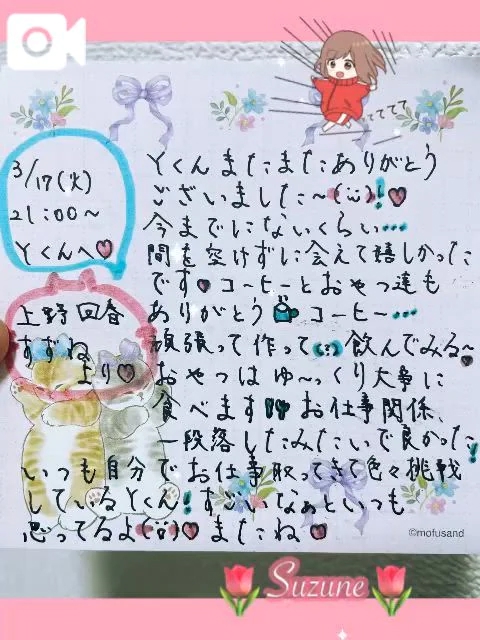 3/17(火)
21:00〜
Yくんへ♡
上野回春
すずね
より♡
Yくんまたまたありがとう
ございました〜(¨)!♡
今までにないくらい…
間を空けずに会えて嬉しかった
です♡コーヒーとおやつ達も
ありがとう☕コーヒー…
頑張って作って(?)飲んでみる〜
おやつはゆ〜っくり大事に
食べます!!お仕事関係、
一段落したみたいで良かった!
いつも自分でお仕事取ってきて色々挑戦
しているYくん!すごいなぁといつも
思ってるよ(¨)♡またね♡
てててて
©mofusand
Suzune